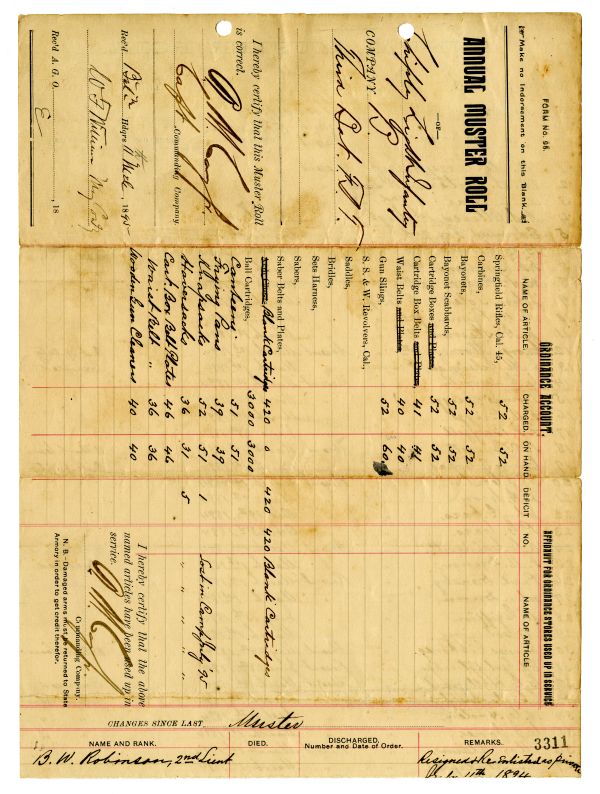 FORM No. 96.
Make no Indorsement on this Blank.
ANNUAL MUSTER ROLL
—OF—
Light Infantry
COMPANY
I hereby certify that this Muster Roll
is correct.
Capt
Commanding Company.
Rec'd Hdqrs 1895
Rec'd A. G. O. , 18
ORDNANCE ACCOUNT.
NAME OF ARTICLE. CHARGED. ON HAND. DEFICIT
Springfield Rifles, Cal. 45, 52 52
Carbines,
Bayonets, 52 52
Bayonet Scabbards, 52 52
Cartridge Boxes and Plates, 52 52
Cartridge Box Belts and Plates, 41 41
Waist Belts and Plates, 40 40
Gun Slings, 52 60
S. & W. Revolvers, Cal.,
Saddles,
Bridles,
Sets Harness,
Sabers,
Saber Belts and Plates,
Blank Cartridges 420 0 420
Ball Cartridges, 3000 3000
Canteens. 51 51
Frying Pans 39 39
Knapsacks 52 51 1
Haversacks 36 31 5
Cart. Box Belt Plates 46 46
Waist Belt " 36 36
Wooden Gun Cleaners 40 40
AFFIDAVIT FOR ORDNANCE STORES USED UP IN SERVICE
NO. NAME OF ARTICLE
420 Blank Cartridges
Lost in Camp July '95
" " " "
I hereby certify that the above
named articles have been used up in
service.
Commanding Company.
N. B.—Damaged arms must be returned to State
Armory in order to get credit therefor.
CHANGES SINCE LAST Muster
NAME AND RANK. DIED. DISCHARGED, Number and Date of Order. REMARKS. 3311
B. W. Robinson, 2nd Lieut Resigned & Re enlisted as private
11th 1894